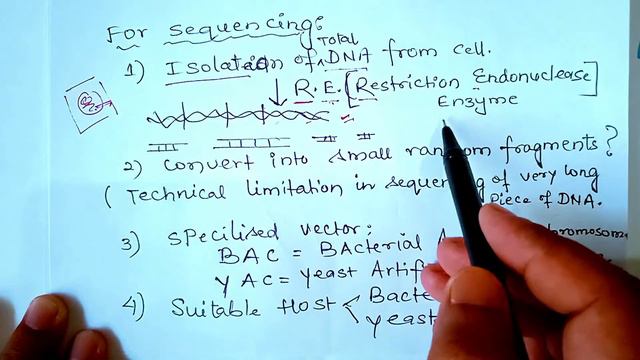 For Sequencing:
Total
1) Isolation of DNA from cell.
R.E. [Restriction Endonuclease]
Enzyme
2) Convert into small random fragments?
( Technical limitation in sequencing of very long
Piece of DNA.
3) Specilised vector:
BAC = BActerial
YAC = Yeast
4) Suitable Host
Yeast